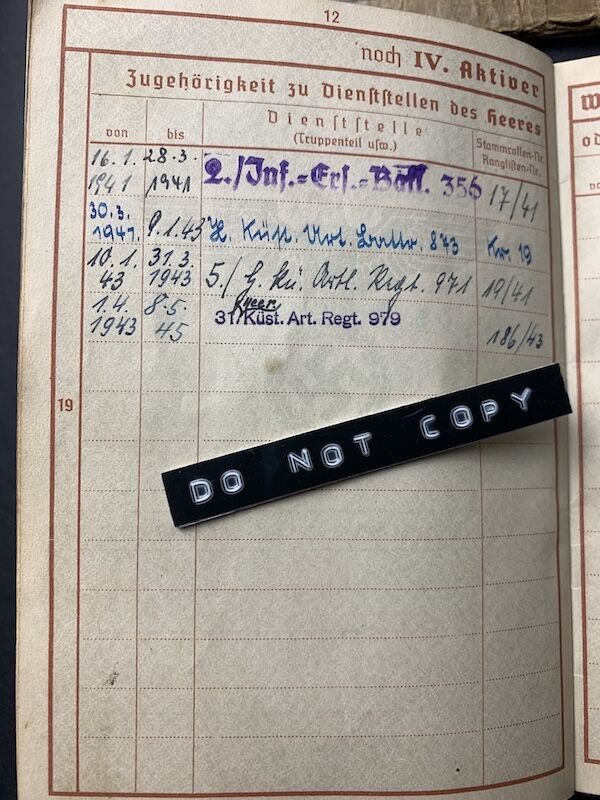 12
noch IV. Aktiver
Zugehörigkeit zu Dienststellen des Heeres
von
bis
Dienststelle
(Truppenteil usw.)
Stammrollen-Nr.
Ranglisten-Nr.
16.1. 1941
28.3. 1941
2./Inf.=Ers.=Batl. 356
17/41
30.3. 1941.
9.1.43
H. Küst. Art. Battr. 873
Kr. 19
10.1. 43
31.3. 1943
5./H. Kü. Artl. Regt. 971
19/41
1.4. 1943
8.5. 45
Heer.
31/Küst. Art. Regt. 979
186/43
19
DO NOT COPY